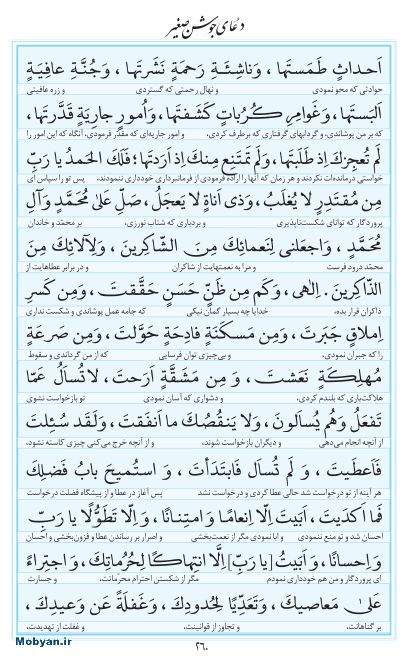 دعای جوشن صغیر
اَحداثٍ طَمَستَها، وَناشِئَةِ رَحمَةٍ نَشَرتَها، وَجُنَّةِ عافِيَةٍ
حوادثی که محو نمودی و نهال رحمتی که گستردی و زره عافیتی
اَلبَستَها، وَغَوامِرِ كُرُباتٍ كَشَفتَها، وَاُمورٍ جارِيَةٍ قَدَّرتَها،
که بر من پوشاندی، و گردابهای گرفتاری که برطرف کردی، و امور جاریه‌ای که مقدّر فرمودی، آنگاه که این امور را
لَم تُعجِزكَ اِذ طَلَبتَها، وَلَم تَمتَنِع مِنكَ اِذ اَرَدتَها؛ فَلَكَ الحَمدُ يا رَبِّ
خواستی درمانده‌ات نکردند و هر زمان که آنها را اراده فرمودی از فرمانبرداری خودداری ننمودند، پس تو را سپاس ای
مِن مُقتَدِرٍ لا يُغلَبُ، وَذى اَناةٍ لا يَعجَلُ، صَلِّ عَلىٰ مُحَمَّدٍ وَآلِ
پروردگار که توانای شکست‌ناپذیری و بردباری که شتاب نورزی، بر محمّد و خاندان
مُحَمَّدٍ، وَاجعَلنى لِنَعمائِكَ مِنَ الشّاكِرينَ، وَلِآلائِكَ مِنَ
محمّد درود فرست و مرا به نعمتهایت از شاکران و در برابر عطاهایت از
الذّاكِرينَ. اِلٰهى، وَكَم مِن ظَنٍّ حَسَنٍ حَقَّقتَ، وَمِن كَسرِ
ذاکران قرار بده، خدایا چه بسیار گمان نیکی که جامه عمل پوشاندی و شکست نداری
اِملاقٍ جَبَرتَ، وَمِن مَسكَنَةٍ فادِحَةٍ حَوَّلتَ، وَمِن صَرعَةٍ
را که جبران نمودی، و بی‌چیزی توان فرسایی که از من گرداندی و سقوط
مُهلِكَةٍ نَعَشتَ، وَ مِن مَشَقَّةٍ اَرَحتَ، لا تُسأَلُ عَمّا
هلاکت‌باری که بلندم کردی، و دشواری که آسان نمودی تو بازخواست نشوی
تَفعَلُ وَهُم يُسأَلونَ، وَلا يَنقُصُكَ ما اَنفَقتَ، وَلَقَد سُئِلتَ
از آنچه انجام می‌دهی و دیگران بازخواست شوند، و از آنچه خرج می‌کنی چیزی کاسته نشود،
فَاَعطَيتَ، وَ لَم تُسأَل فَابتَدَأتَ، وَ استُميحَ بابُ فَضلِكَ
هر آینه از تو درخواست شد حالی عطا کردی و درخواست نشد پس آغاز در عطا و از پیشگاه فضلت درخواست
فَما اَكدَيتَ، اَبَيتَ اِلّا اِنعامًا وَامتِنانًا، وَ اِلّا تَطَوُّلًا يا رَبِّ
احسان شد و تو منع ننمودی و ابا نمودی مگر از نعمت‌بخشی و اصرار بر رساندن عطا و فزون‌بخشی و احسان
وَاِحسانًا، وَاَبَيتُ [يا رَبِ] اِلَّا انتِهاكًا لِحُرُماتِكَ، وَاجتِراءً
ای پروردگار و من هم خودداری نمودم مگر از شکستن احترام محرّماتت، و جسارت
عَلىٰ مَعاصيكَ، وَتَعَدِّيًا لِحُدودِكَ، وَغَفلَةً عَن وَعيدِكَ،
بر گناهانت، و تجاوز از قوانینت، و غفلت از تهدیدت،
۲۶۰
Mobyan.ir